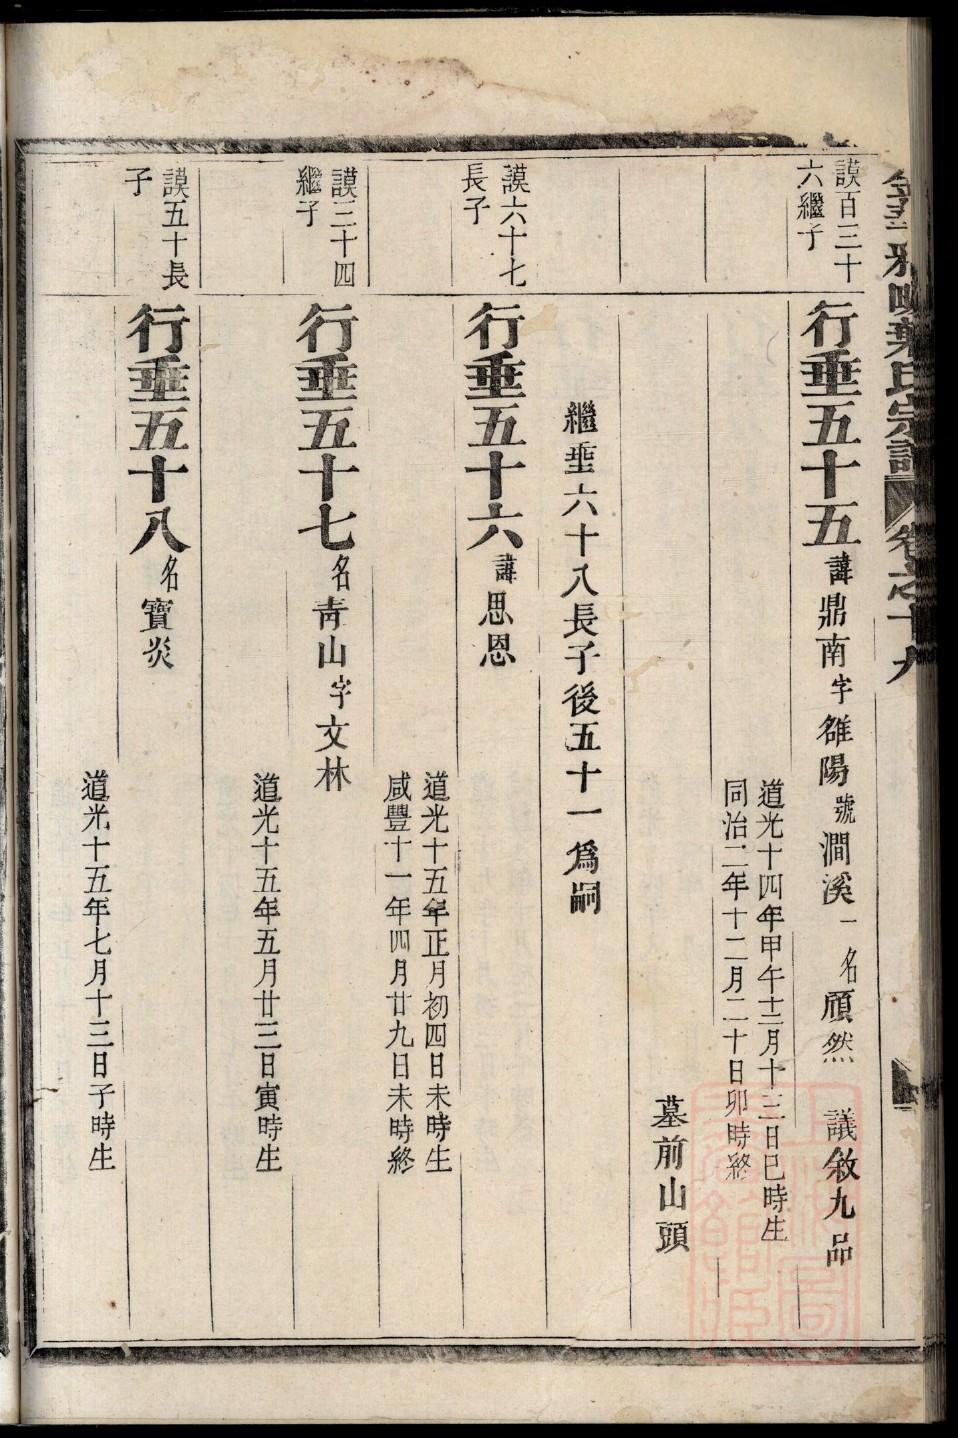 謨百三十
六繼子
行垂五十五諱鼎南字雒陽號澗溪一名頎然 議敘九品
道光十四年甲午十二月十三日巳時生
同治二年十二月二十日卯時終
墓前山頭
繼垂六十八長子後五十一爲嗣
謨六十七
長子
行垂五十六諱思恩
道光十五年正月初四日未時生
咸豐十一年四月廿九日未時終
謨三十四
繼子
行垂五十七名青山字文林
道光十五年五月廿三日寅時生
謨五十長
子
行垂五十八名寶炎
道光十五年七月十三日子時生
葉氏宗譜 卷之十九